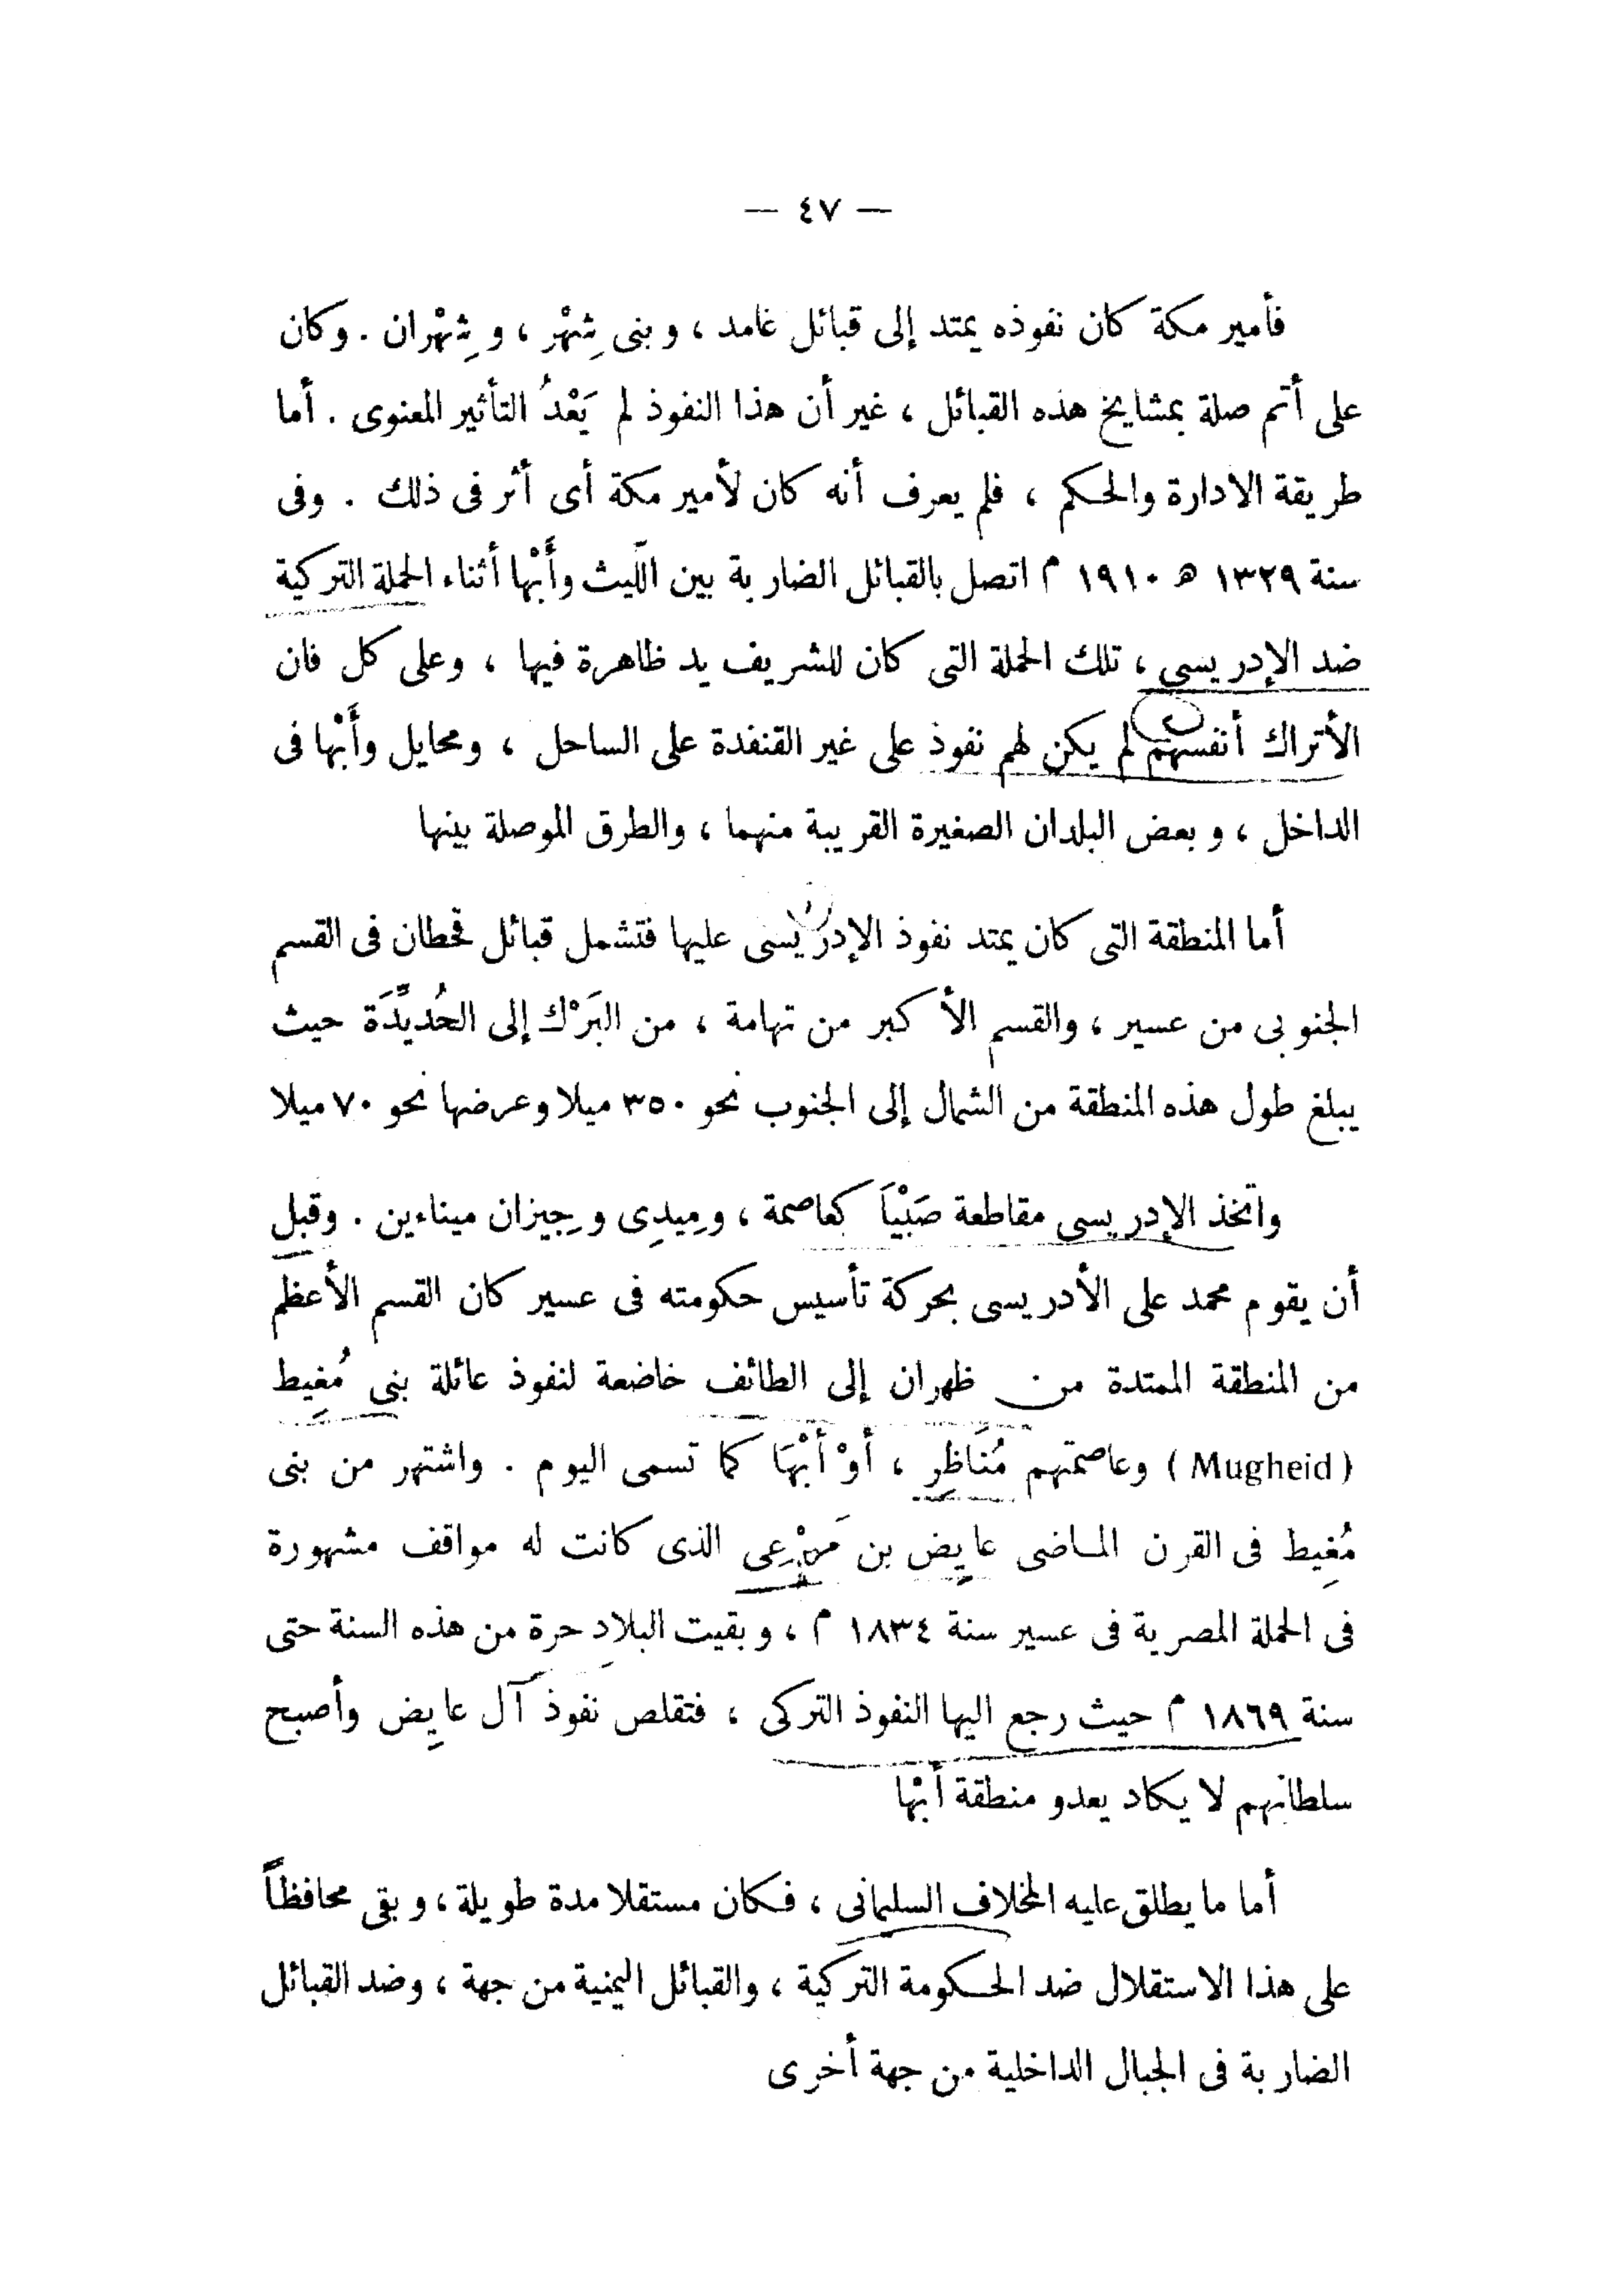 — ٤٧ —
فأمير مكة كان نفوذه يمتد إلى قبائل غامد ، و بنى شِهْر ، و شِهْران . وكان
على أتم صلة بمشايخ هذه القبائل ، غير أن هذا النفوذ لم يَعْدُ التأثير المعنوى . أما
طريقة الادارة والحكم ، فلم يعرف أنه كان لأمير مكة أى أثر فى ذلك . وفى
سنة ١٣٢٩ ه ١٩١٠ م اتصل بالقبائل الضاربة بين اللّيث وأَبْها أثناء الحملة التركية
ضد الإدريسى ، تلك الحملة التى كان للشريف يد ظاهرة فيها ، وعلى كل فان
الأتراك أنفسهم لم يكن لهم نفوذ على غير القنفدة على الساحل ، ومحايل وأَبْها فى
الداخل ، و بعض البلدان الصغيرة القريبة منهما ، والطرق الموصلة بينها
أما المنطقة التى كان يمتد نفوذ الإدريسى عليها فتشمل قبائل قحطان فى القسم
الجنوبى من عسير ، والقسم الأكبر من تهامة ، من البَرْك إلى الحُديِّدَة حيث
يبلغ طول هذه المنطقة من الشمال إلى الجنوب نحو ٣٥٠ ميلا وعرضها نحو ٧٠ ميلا
واتخذ الإدريسى مقاطعة صَبْيَا كعاصمة ، ومِيدِى وجِيزان ميناءين . وقبل
أن يقوم محمد على الأدريسى بحركة تأسيس حكومته فى عسير كان القسم الأعظم
من المنطقة الممتدة من ظهران إلى الطائف خاضعة لنفوذ عائلة بنى مُغِيط
( Mugheid ) وعاصمتهم مُنَاظِر ، أوْ أَبْهَا كما تسمى اليوم . واشتهر من بنى
مُغِيط فى القرن المـاضى عايِض بن مَرْعِى الذى كانت له مواقف مشهورة
فى الحملة المصرية فى عسير سنة ١٨٣٤ م ، و بقيت البلاد حرة من هذه السنة حتى
سنة ١٨٦٩ م حيث رجع اليها النفوذ التركى ، فتقلص نفوذ آل عايِض وأصبح
سلطانهم لا يكاد يعدو منطقة أَبْها
أما ما يطلق عليه المخلاف السليمانى ، فكان مستقلا مدة طويلة ، و بقى محافظاً
على هذا الاستقلال ضد الحكومة التركية ، والقبائل اليمنية من جهة ، وضد القبائل
الضاربة فى الجبال الداخلية من جهة أخرى